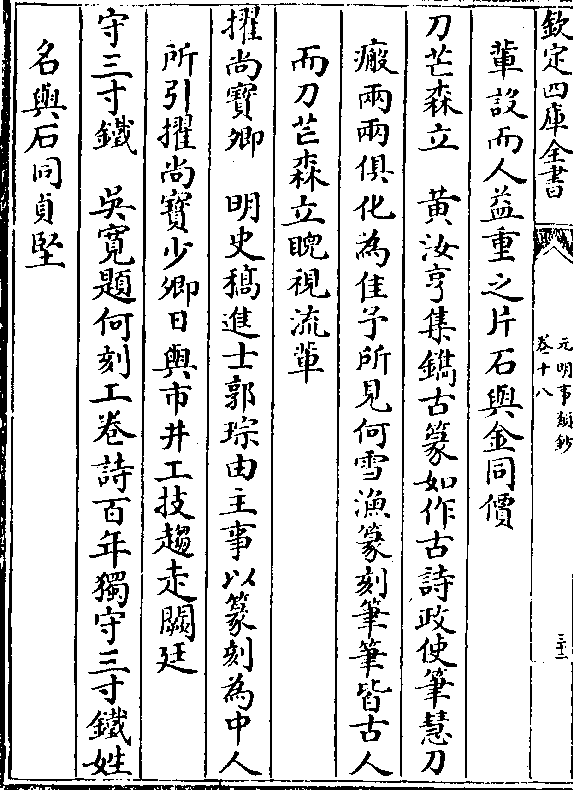 欽定四庫全書
元明事類鈔
卷十八
三十二
輩設而人益重之片石與金同價
刀芒森立　黄汝亨集鐫古篆如作古詩政使筆慧刀
瘢兩兩俱化為佳予所見何雪漁篆刻筆筆皆古人
而刀芒森立睨視流輩
擢尚寶卿　明史稿進士郭琮由主事以篆刻為中人
所引擢尚寶少卿日與市井工技趨走闕廷
守三寸鐵　吳寛題何刻工卷詩百年獨守三寸鐵姓
名與石同貞堅